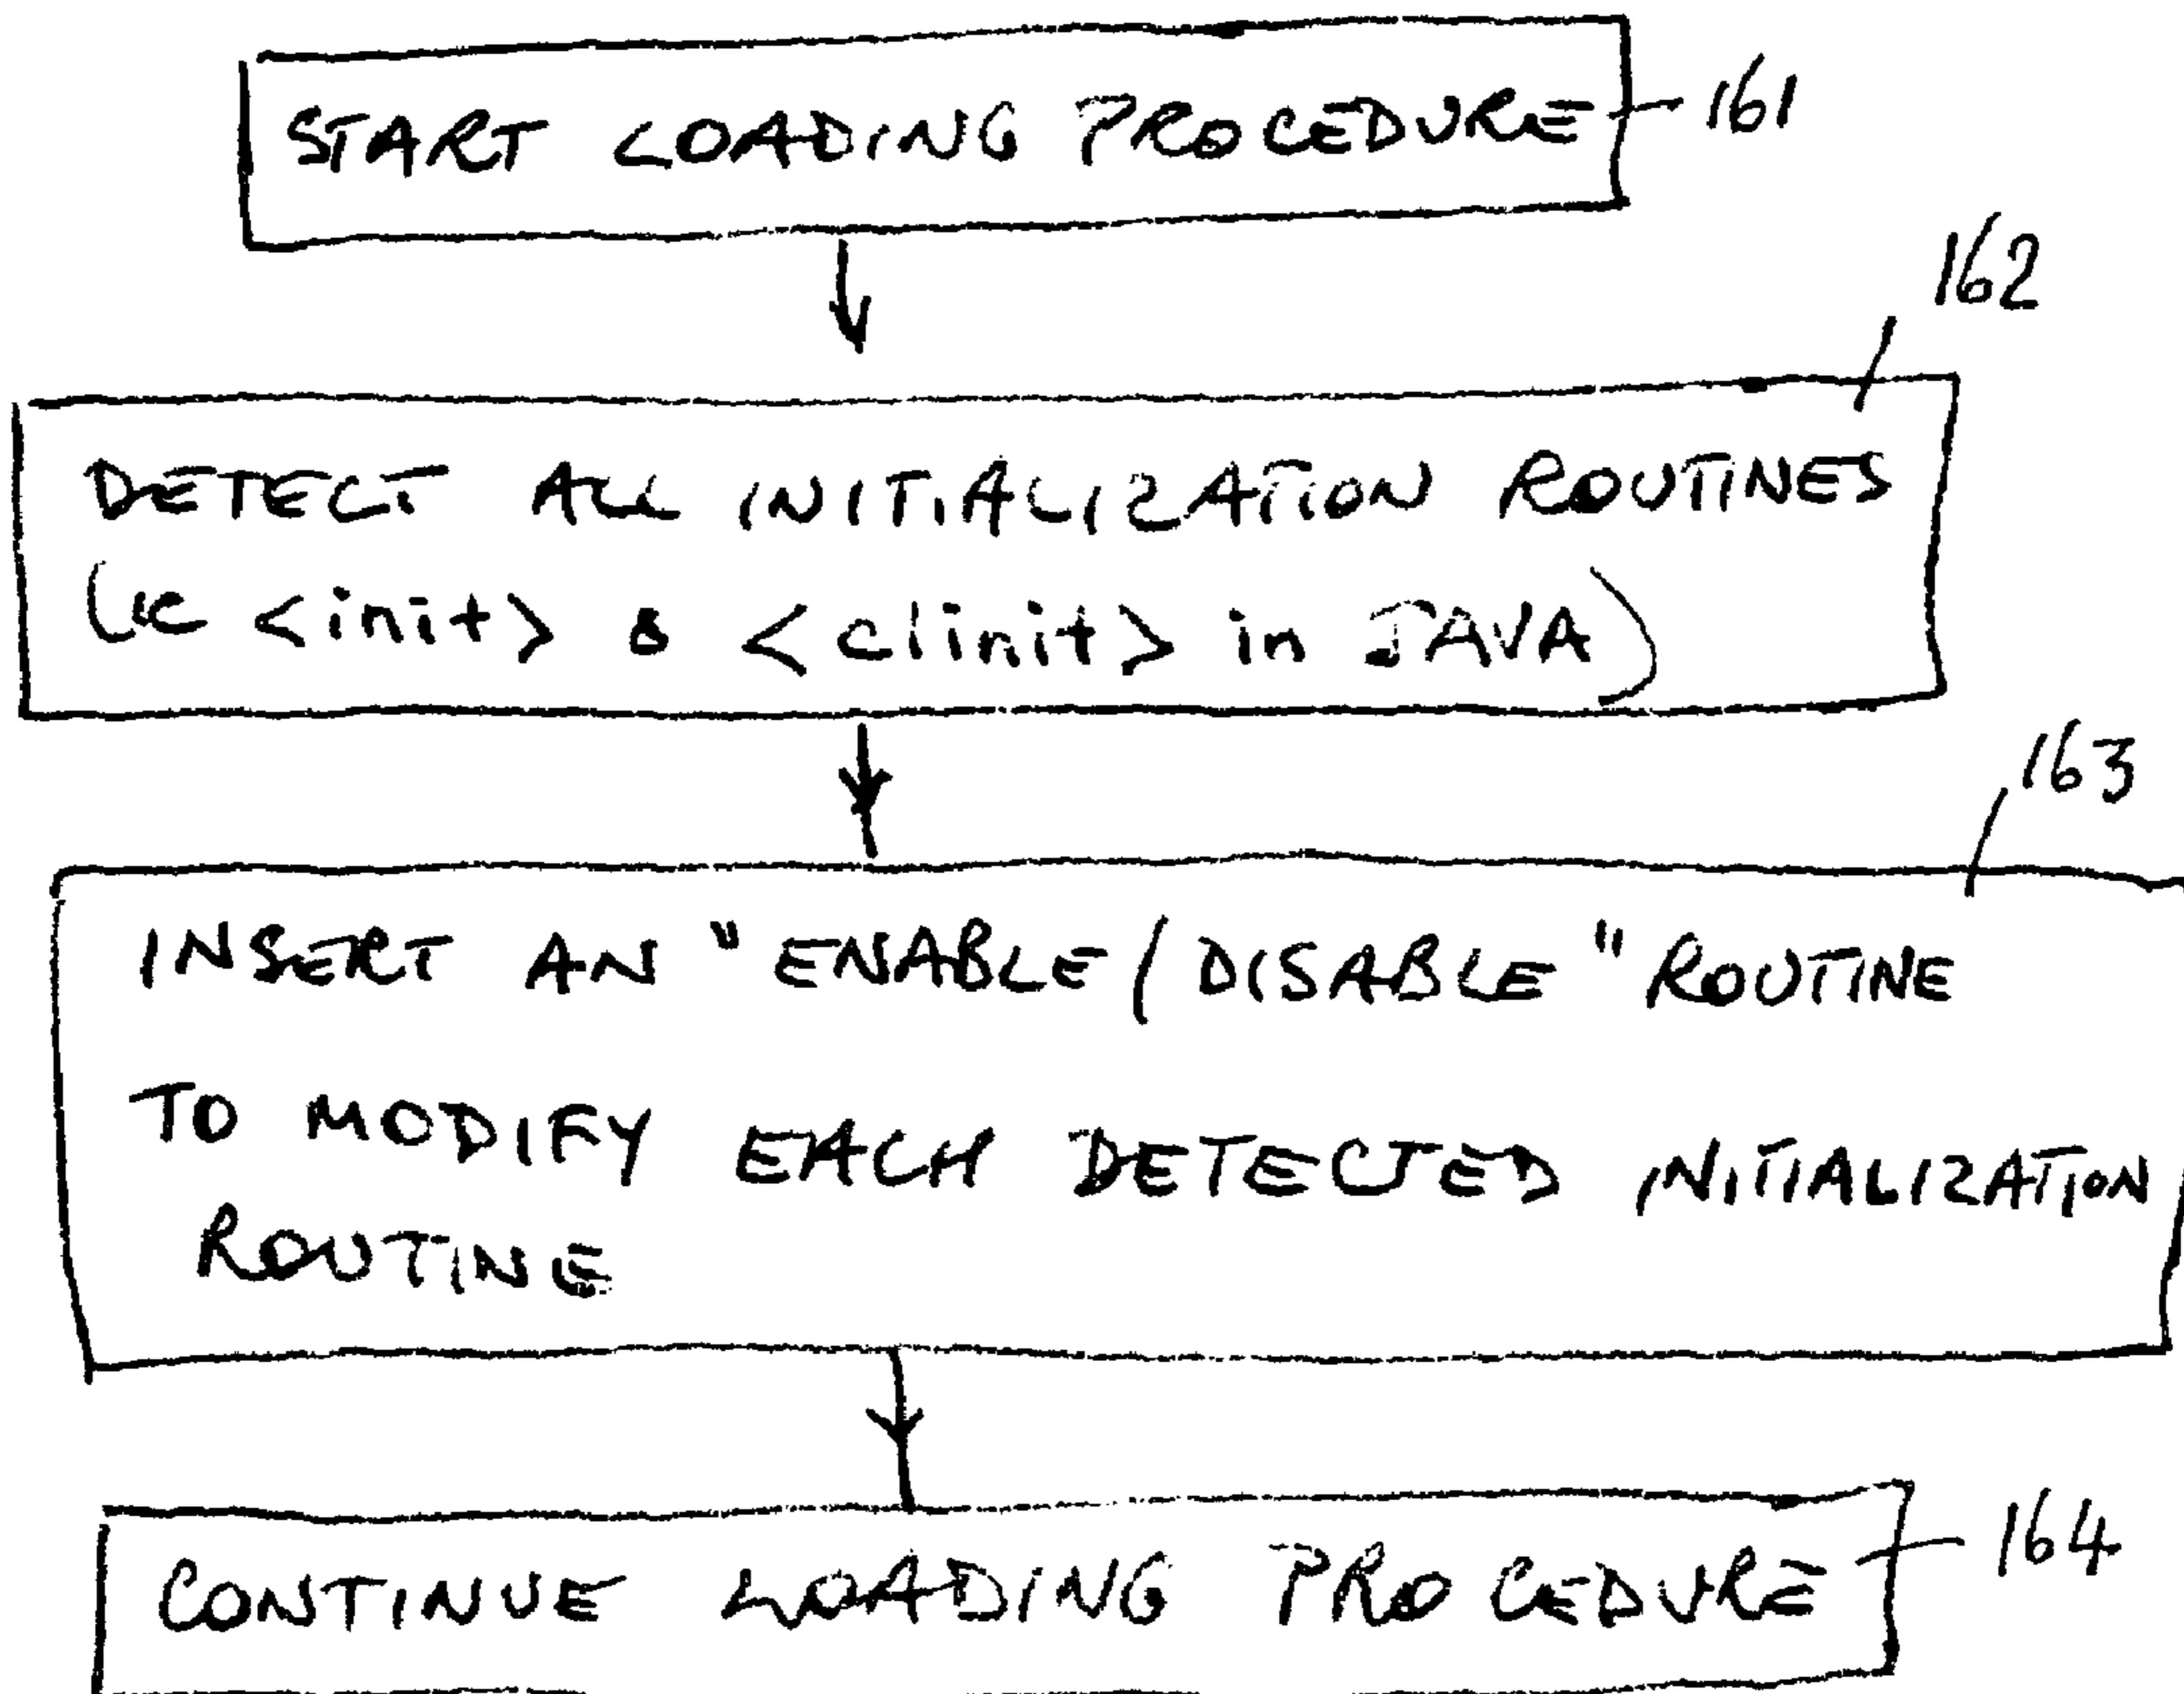 START LOADING PROCEDURE 161
162
DETECT ALL INITIALIZATION ROUTINES
(ie <init> & <clinit> in JAVA)
163
INSERT AN "ENABLE/DISABLE" ROUTINE
TO MODIFY EACH DETECTED INITIALIZATION
ROUTINE
CONTINUE LOADING PROCEDURE 164